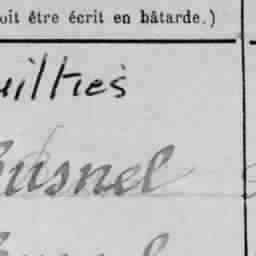 oit être écrit en bâtarde.)
uilties
usnel